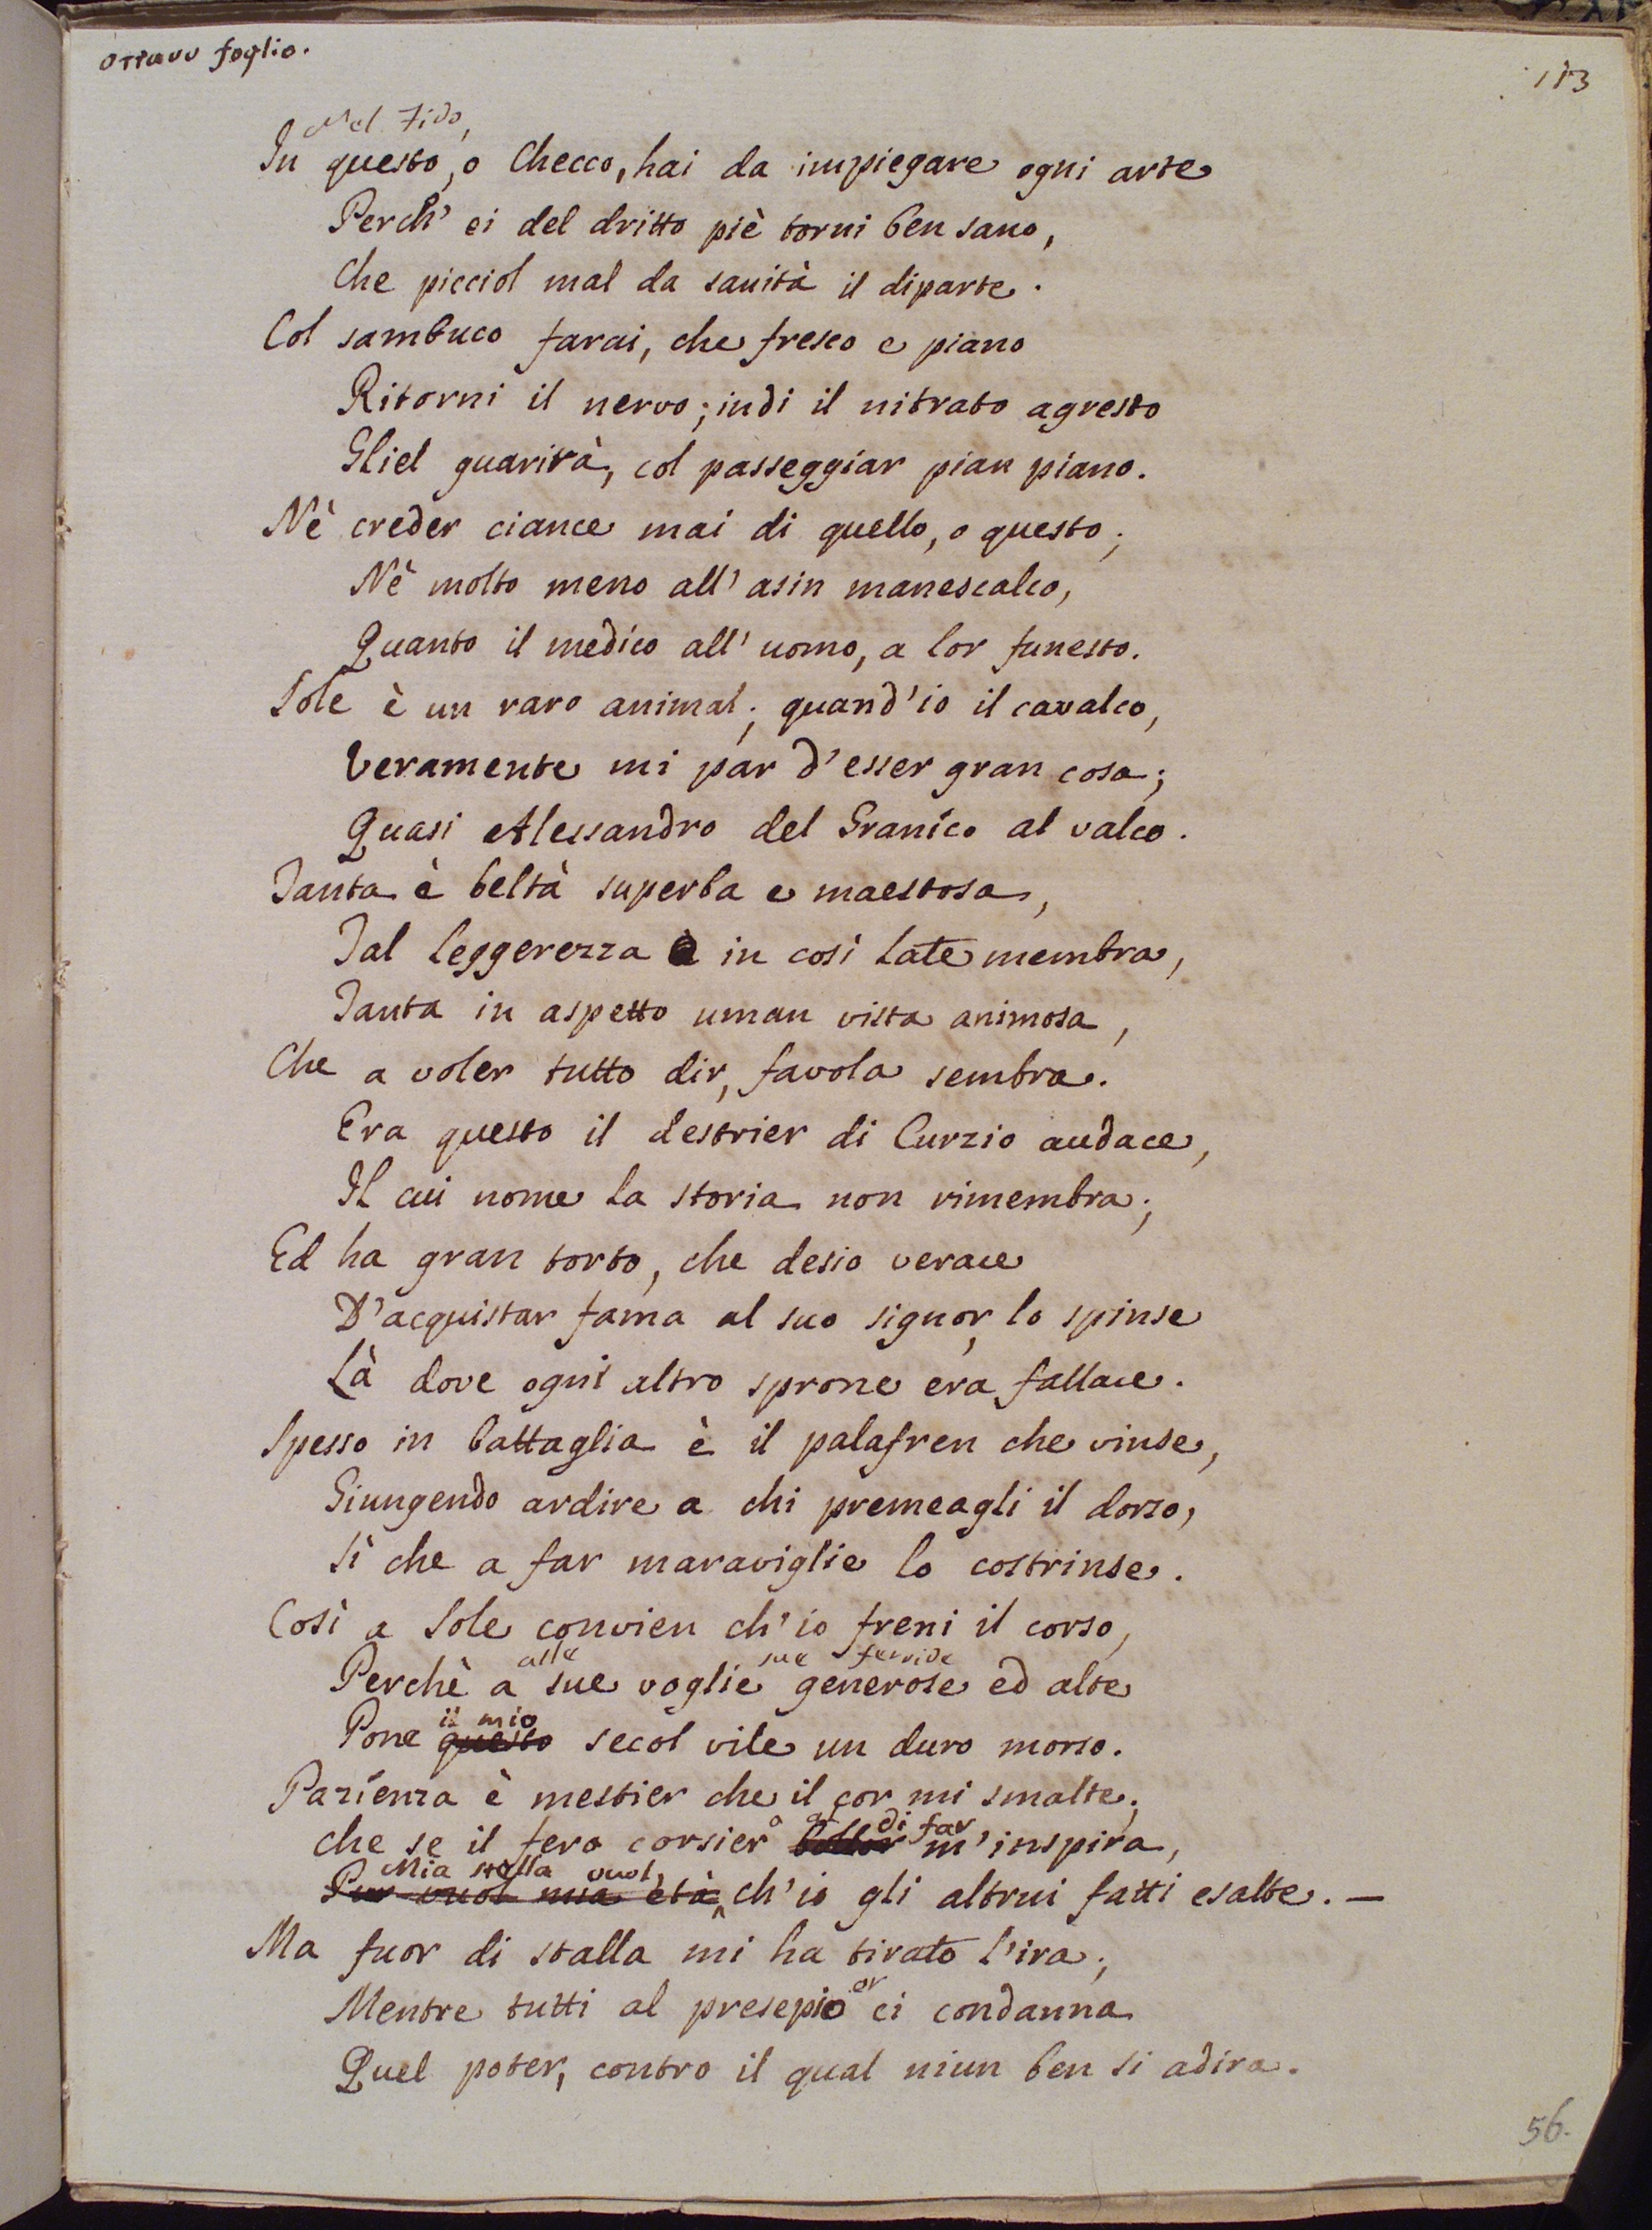 ottavo foglio.
183
Nel Fido,
In questo, o Checco, hai da impiegare ogni arte
Perch' ei del dritto piè torni ben sano,
Che picciol mal da sanità il diparte.
Col sambuco farai, che fresco e piano
Ritorni il nervo; indi il nitrato agresto
Gliel guarirà, col passeggiar pian piano.
Nè creder ciance mai di quello, o questo;
Nè molto meno all' asin manescalco,
Quanto il medico all' uomo, a lor funesto.
Sole è un raro animal; quand' io il cavalco,
Veramente mi par d' esser gran cosa;
Quasi Alessandro del Granico al valco.
Tanta è beltà superba e maestosa,
Tal leggerezza è in così late membra,
Tanta in aspetto uman vista animosa,
Che a voler tutto dir, favola sembra.
Era questo il destrier di Curzio audace,
Il cui nome la storia non rimembra;
Ed ha gran torto, che desio verace
D' acquistar fama al suo signor, lo spinse
Là dove ogni altro sprone era fallace.
Spesso in battaglia è il palafren che vinse,
Giungendo ardire a chi premeagli il dorso,
Sì che a far maraviglie lo costrinse.
Così a Sole convien ch' io freni il corso,
alle sue fervide
Perchè a sue voglie generose ed alte
il mio
Pone questo secol vile un duro morso.
Pazienza è mestier che il cor mi smalte;
di far
che se il fero corsier m' inspira,
Mia stella vuol,
Pur vuol mia età ch' io gli altrui fatti esalte. —
Ma fuor di stalla mi ha tirato l' ira;
or
Mentre tutti al presepio ci condanna
Quel poter, contro il qual niun ben si adira.
56.